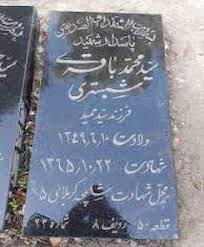 پاسدار شهید
سید محمد باقری
شبستری
فرزند سید حمید
ولادت ۱۳۴۹٫۶٫۱۰
شهادت ۱۳۶۵٫۱۰٫۲۲
محل شهادت شلمچه کربلای ۵
قطعه ۵۰ ردیف ۸ شماره ۲۳